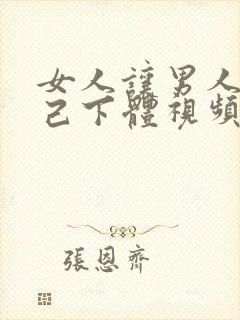 女人讓男人
己下體視頻
張恩齊